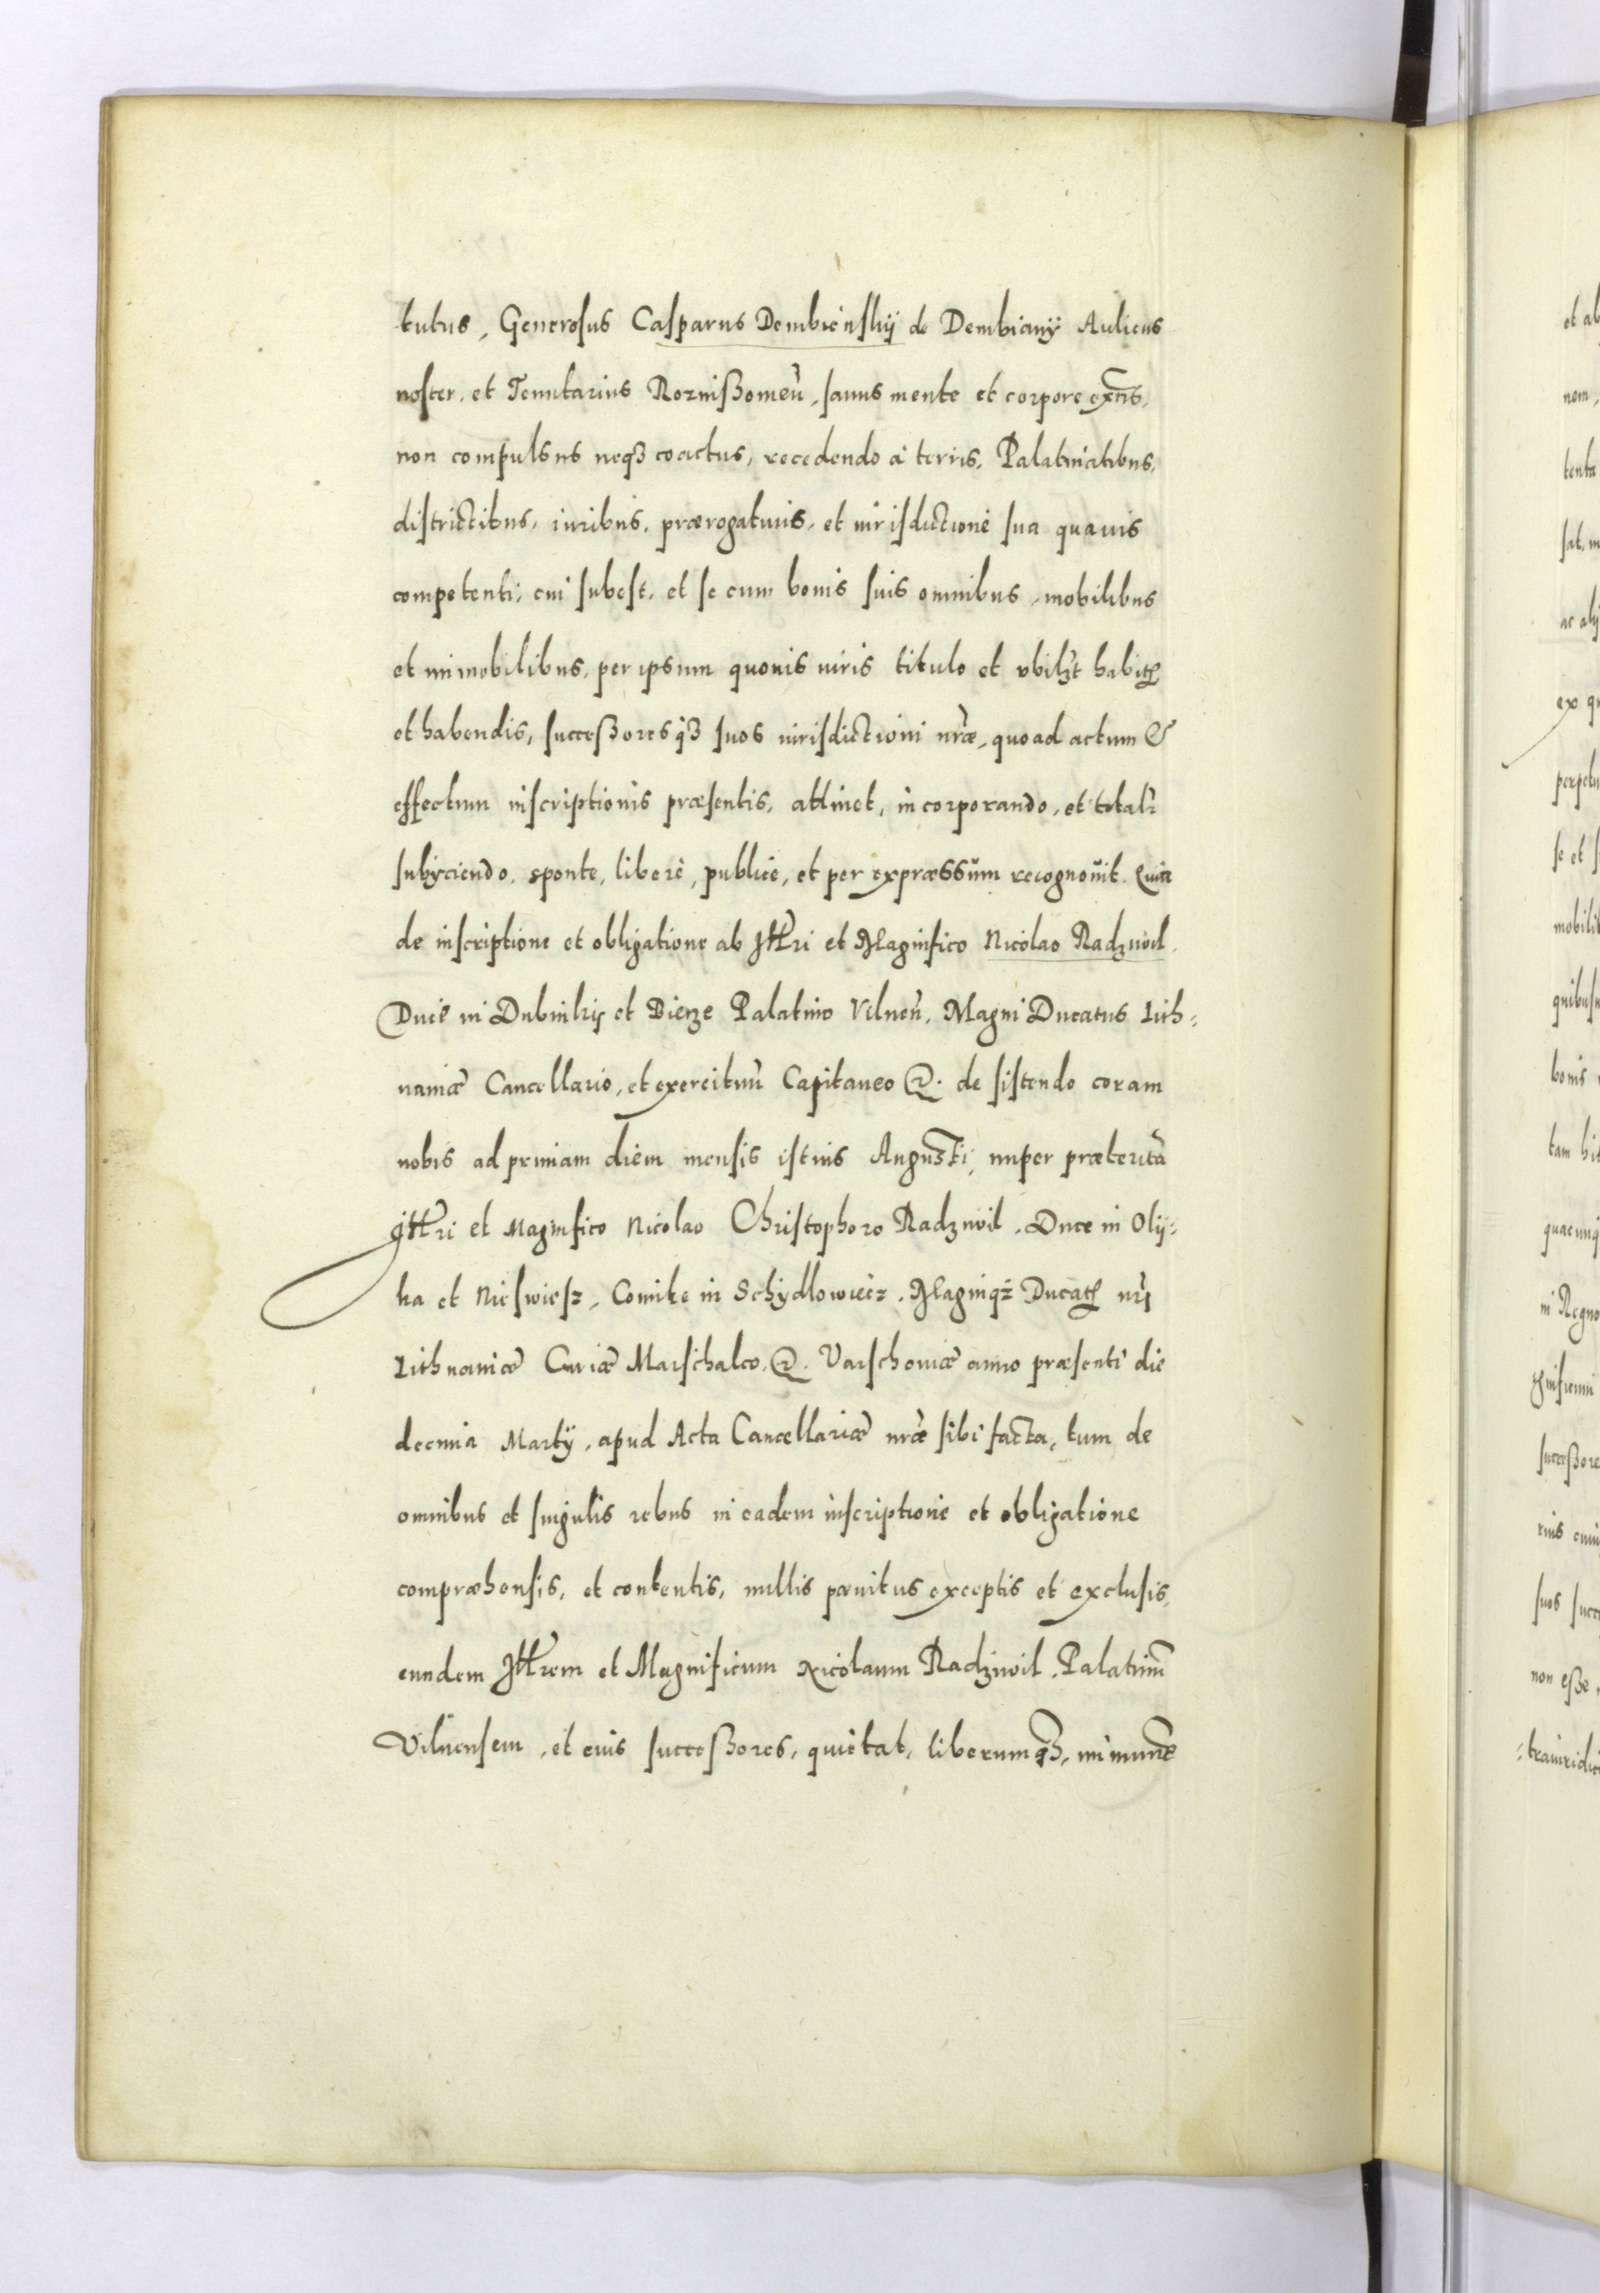 tutus, Generosus Casparus Dembienskij de Dembiany Aulicus
noster, et Tenutarius Roznißomeñ, sanus mente et corpore extñs,
non compulsus neqʒ coactus, recedendo à terris, Palatinatibus,
districtibus, iuribus, prærogatiuis, et iurisdictione sua quauis
competenti, cui subest, et se cum bonis suis omnibus, mobilibus
et immobilibus, per ipsum quouis iuris titulo et vbilʒt habitʒ
et habendis, successoresqʒ suos iurisdictioni nræ, quoad actum &
effectum inscriptionis præsentis, attinet, incorporando, et totalr
subÿciendo, sponte, liberè, publicè, et per expræssum recognouit. Quia
de inscriptione et obligatione ab Illri et Magnifico Nicolao Radziwil
Duce in Dubinkij et Bierze Palatino Vilneñ, Magni Ducatus Lith=
uaniæ Cancellario, et exercituũ Capitaneo &. de sistendo coram
nobis ad primam diem mensis istius Augusti, nuper præteritã
Illri et Magnifico Nicolao Christophoro Radziwil, Duce in Olij=
ka et Nieswiesz, Comite in Schydlowiecz, Magniqʒ Ducatʒ nri
Lithuaniæ Curiæ Marschalco, &. Varschouiæ anno præsenti die
decima Martÿ, apud Acta Cancellariæ nræ sibi facta, tum de
omnibus et singulis rebus in eadem inscriptione et obligatione
compræhensis, et contentis, nullis pœnitus exceptis et exclusis,
eundem Illrem et Magnificum Nicolaum Radziwil, Palatinũ
Vilnensem, et eius successores, quietat, liberumqʒ, immunẽ